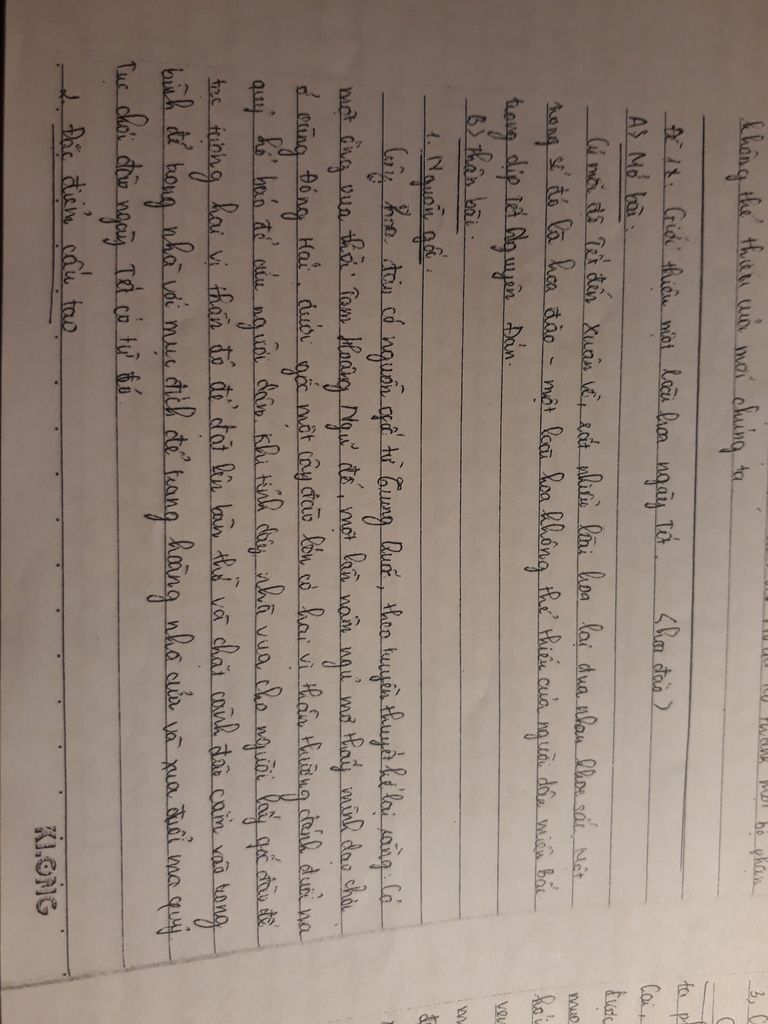 không thể thiếu của mỗi chúng ta
Đề 14: Giới thiệu một loài hoa ngày Tết. (hoa đào)
A> Mở bài:
Cứ mỗi độ Tết đến xuân về, rất nhiều loài hoa lại đua nhau khoe sắc. Một
trong số đó là hoa đào - một loài hoa không thể thiếu của người dân miền Bắc
trong dịp Tết Nguyên Đán.
B> Thân bài.
1. Nguồn gốc.
đào có nguồn gốc từ Trung Quốc, theo truyền thuyết kể lại rằng: Có
một ông vua thời Tam Hoàng Ngũ đế, một lần nằm ngủ mơ thấy mình dạo chơi
ở vùng Đông Hải, dưới gốc một cây đào lớn có hai vị thần thường đánh đuổi ma
quỷ, hổ báo để cứu người dân. Khi tỉnh dậy, nhà vua cho người lấy gỗ đào để
tạc tượng hai vị thần đó để đặt lên bàn thờ và chặt cành đào cắm vào trong
bình để trong nhà với mục đích để trang hoàng nhà cửa và xua đuổi ma quỷ.
Tục chơi đào ngày Tết có từ đó.
2. Đặc điểm cấu tạo
KLONG
3,
ta
Cai,
được
hỏi